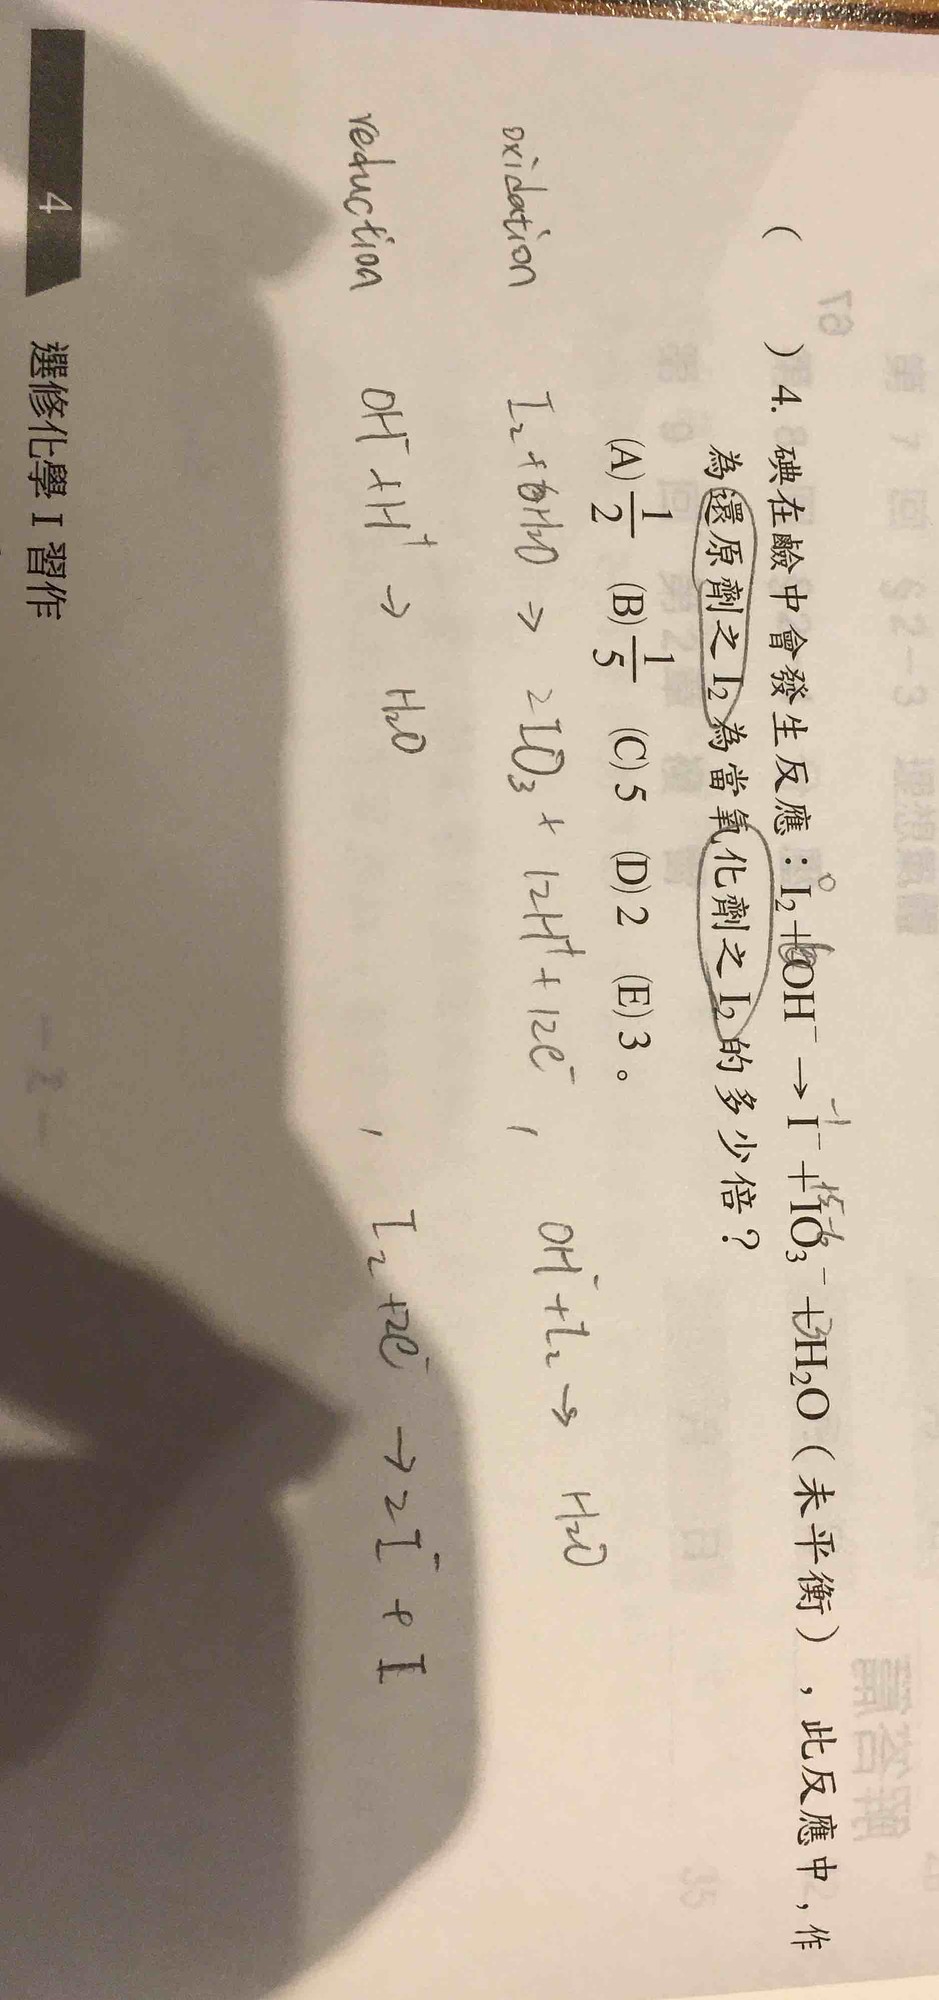 ( ) 4. 碘在鹼中會發生反應：I₂ + 6OH⁻ → I⁻ + IO₃⁻ + 3H₂O（未平衡），此反應中，作
為還原劑之 I₂ 為當氧化劑之 I₂ 的多少倍？
(A) 1/2 (B) 1/5 (C) 5 (D) 2 (E) 3。
oxidation I₂ + 6H₂O → 2IO₃ + 12H⁺ + 12e⁻ , OH⁻ + I₂ → H₂O
reduction OH⁻ + H⁺ → H₂O , I₂ + 2e⁻ → 2I⁻ + I
4 選修化學 I 習作